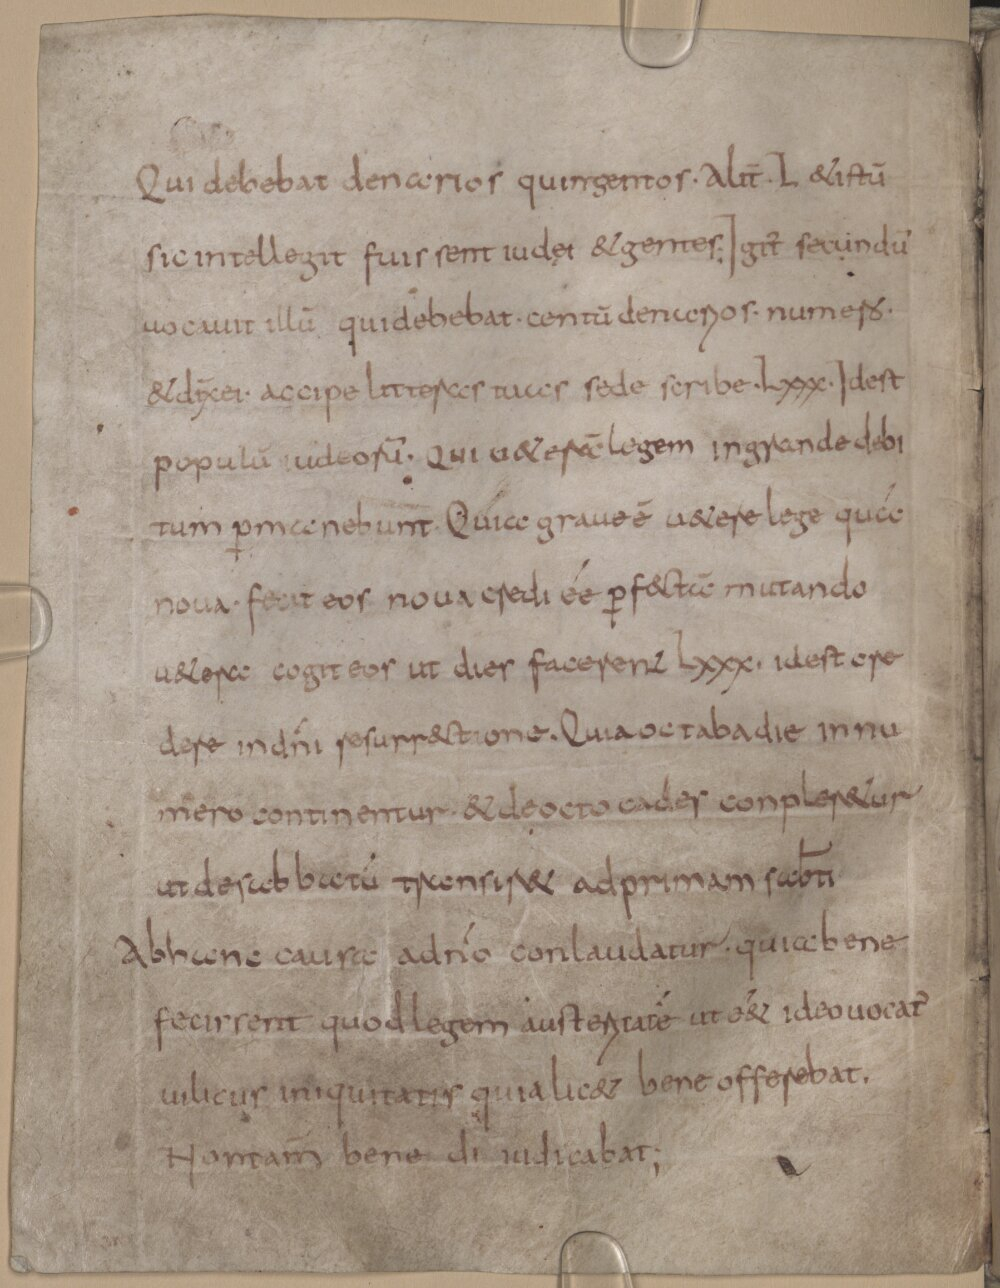 Qui debebat denarios quingentos. Aliť. L &istū
sic intellegit fuissent iudei & gentes; Igiť secundū
vocavit illū qui debebat. centū denarios. numero.
& dix̄ ei. accipe litteras tuas sede scribe. Lxxx. Idest
populū iudeorū. Qui u&erā legem in grande debi
tum ꝑmanebunt. Quia graue ē u&ere lege quā
nova. fecit eos nova credi éé ꝑf&ctā mutando
u&era cogit eos ut dies facerent Lxxx. idest cre
dere in dn̄i resurr&ctione. Quia octaba die in nu
mero continentur. & de octo cades conpler&ur
ut de sabbatū transir& ad primam sab̄ti
Ab hanc causa a dn̄o conlaudatur. quia bene
fecissent quod legem austeritatē ut é& ideo vocať
uilicus iniquitatis quia lic& bene offerebat.
Non tam̄ bene di iudicabat;